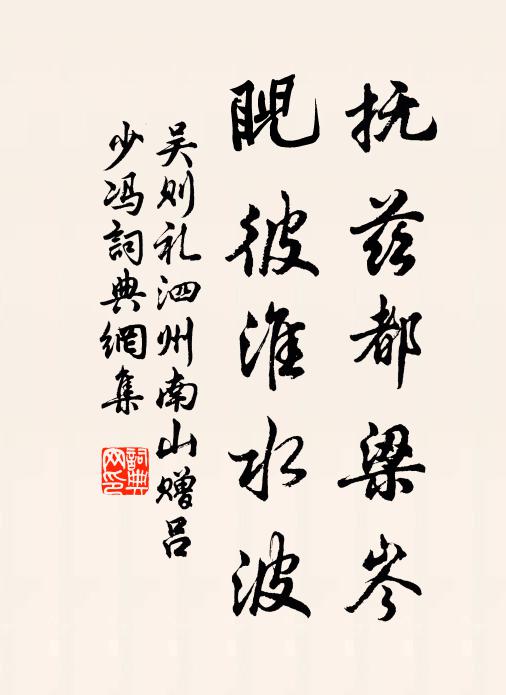 抚兹都梁岑
睨彼淮水波
吴则礼泗州南山赠吕
少冯詞典網集
詞典
网印